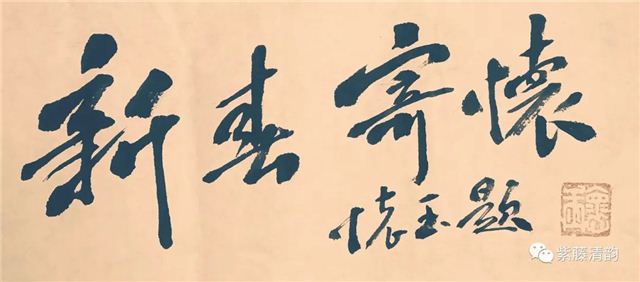 新春寄懷
懷玉題
紫藤清韵